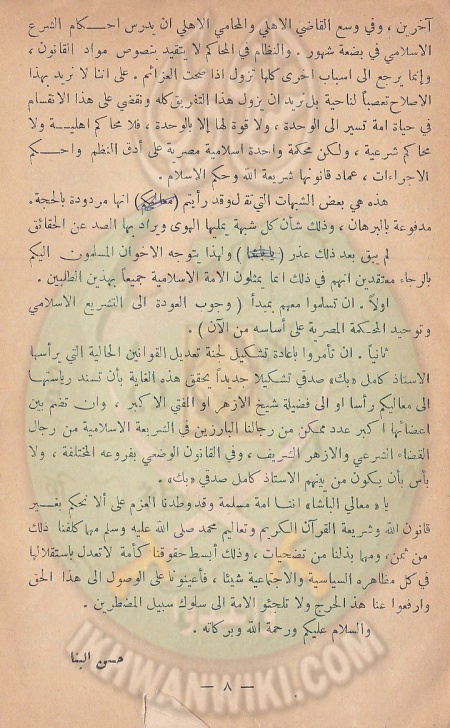 آخرين ، وفي وسع القاضي الاهلي والمحامي الاهلي ان يدرس احكام الشرع
الاسلامي في بضعة شهور . والنظام في المحاكم لا يتقيد بنصوص مواد القانون ،
وإنما يرجع الى اسباب اخرى كلها تزول اذا صحت العزائم . على اننا لا نريد بهذا
الاصلاح تعصباً لناحية بل نريد ان يزول هذا التفريق كله ونقضي على هذا الانقسام
في حياة امة تسير الى الوحدة ، ولا قوة لها إلا بالوحدة ، فلا محاكم اهلية ولا
محاكم شرعية ، ولكن محكمة واحدة اسلامية مصرية على أدق النظم واحكم
الاجراءات ، عماد قانونها شريعة الله وحكم الاسلام .
هذه هي بعض الشبهات التي تقال وقد رأيتم (معاليكم) انها مردودة بالحجة .
مدفوعة بالبرهان ، وذلك شأن كل شبهة يمليها الهوى ويراد بها الصد عن الحقائق
لم يبق بعد ذلك عذر ( ) ولهذا يتوجه الاخوان المسلمون اليكم
بالرجاء معتقدين انهم في ذلك انما يمثلون الامة الاسلامية جميعاً بهذين الطلبين .
اولاً . ان تسلموا معهم بمبدأ ( وجوب العودة الى التشريع الاسلامي
وتوحيد المحكمة المصرية على أساسه من الآن ) .
ثانياً . ان تأمروا باعادة تشكيل لجنة تعديل القوانين الحالية التي يرأسها
الاستاذ كامل «بك» صدقي تشكيلا جديداً يحقق هذه الغاية بأن تسند رياستها
الى معاليكم رأسا او الى فضيلة شيخ الازهر او المفتي الاكبر ، وان تضم بين
اعضائها اكبر عدد ممكن من رجالنا البارزين في الشريعة الاسلامية من رجال
القضاء الشرعي والازهر الشريف ، وفي القانون الوضعي بفروعه المختلفة ، ولا
بأس بأن يكون من بينهم الاستاذ كامل صدقي «بك» .
يا « معالي الباشا» اننا امة مسلمة وقد وطدنا العزم على ألا نحكم بغير
قانون الله وشريعة القرآن الكريم وتعاليم محمد صلى الله عليه وسلم مهما كلفنا ذلك
من ثمن، ومهما بذلنا من تضحيات ، وذلك أبسط حقوقنا كأمة لا تعدل باستقلالها
في كل مظاهره السياسية والاجتماعية شيئا ، فأعينونا على الوصول الى هذا الحق
وارفعوا عنا هذ الحرج ولا تلجئو الامة الى سلوك سبيل المضطرين .
والسلام عليكم ورحمة الله وبركاته .
حسن البنا
— ٨ —
IKHWANWIKI.COM